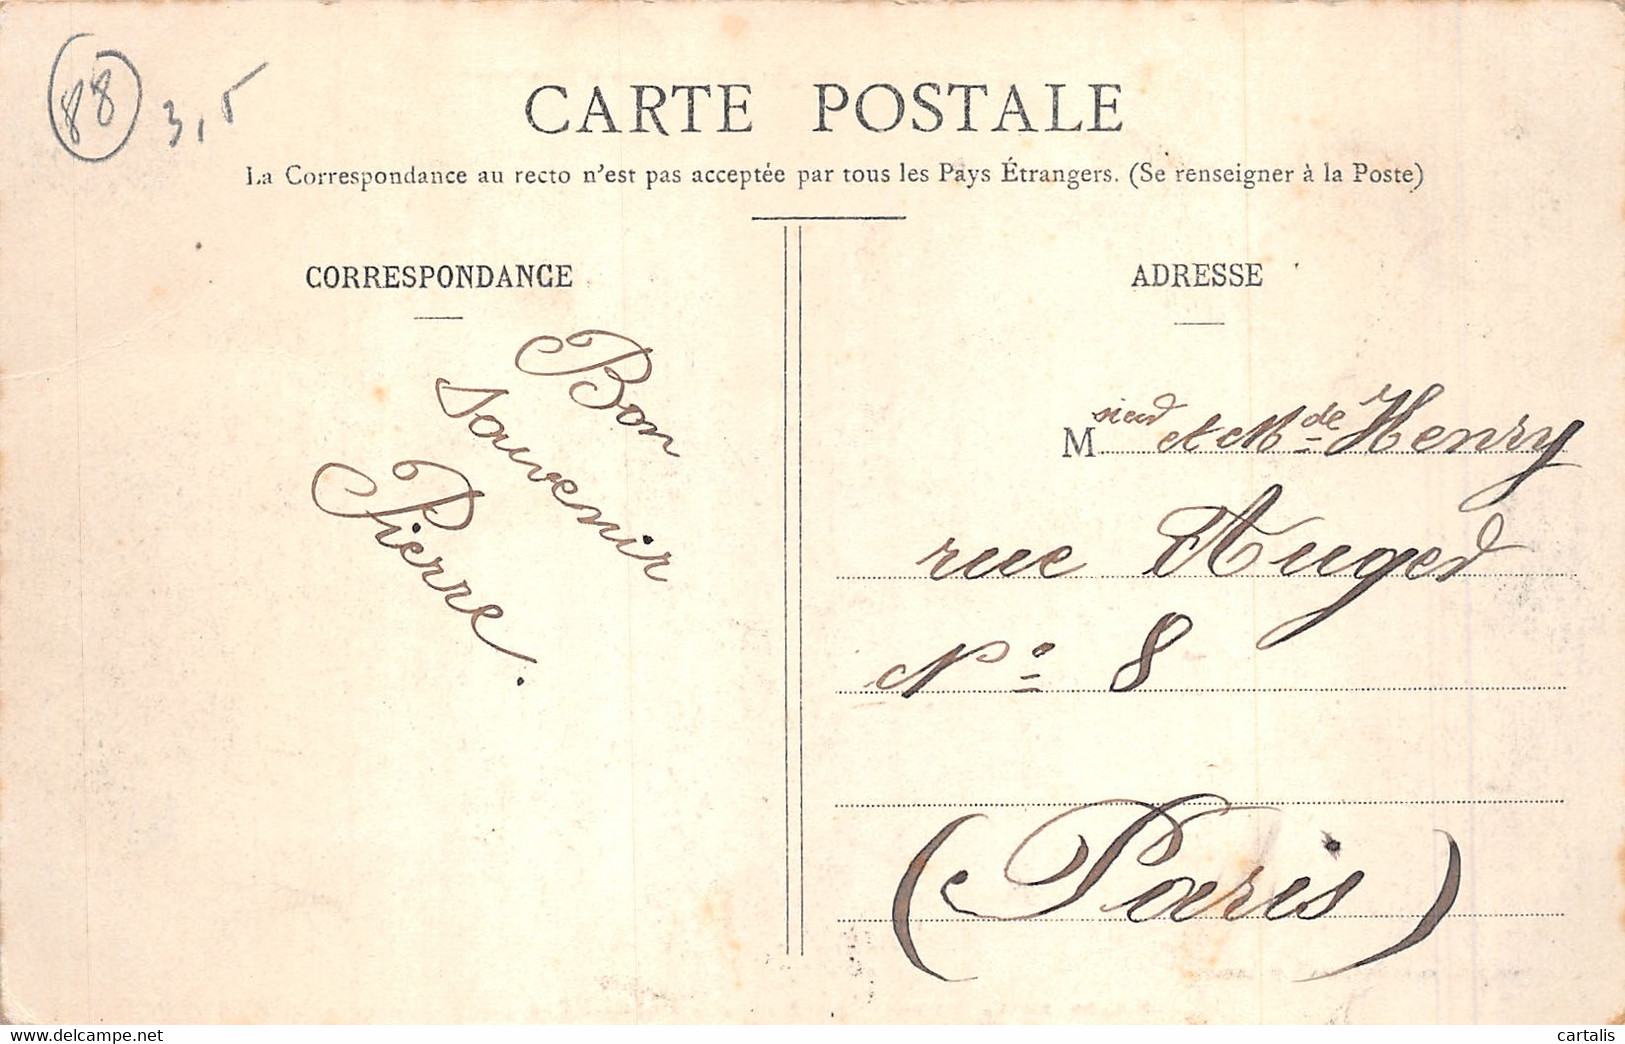 88
3,5
CARTE POSTALE
La Correspondance au recto n'est pas acceptée par tous les Pays Étrangers. (Se renseigner à la Poste)
CORRESPONDANCE
Bon
souvenir
Pierre.
ADRESSE
Msieur et Mde Henry
rue Auger
No 8
(Paris)
www.delcampe.net
cartalis